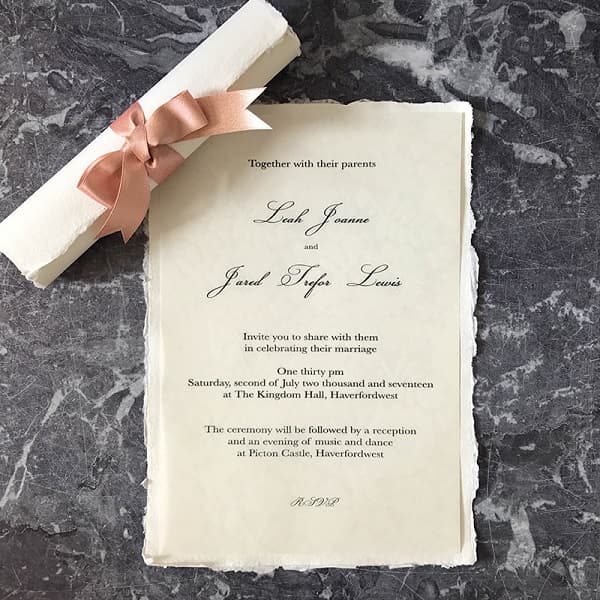 Together with their parents
Leah Joanne
and
Jared Trefor Lewis
Invite you to share with them
in celebrating their marriage
One thirty pm
Saturday, second of July two thousand and seventeen
at The Kingdom Hall, Haverfordwest
The ceremony will be followed by a reception
and an evening of music and dance
at Picton Castle, Haverfordwest
RSVP